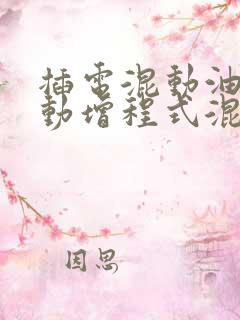 插电混動油
動增程式混
因思